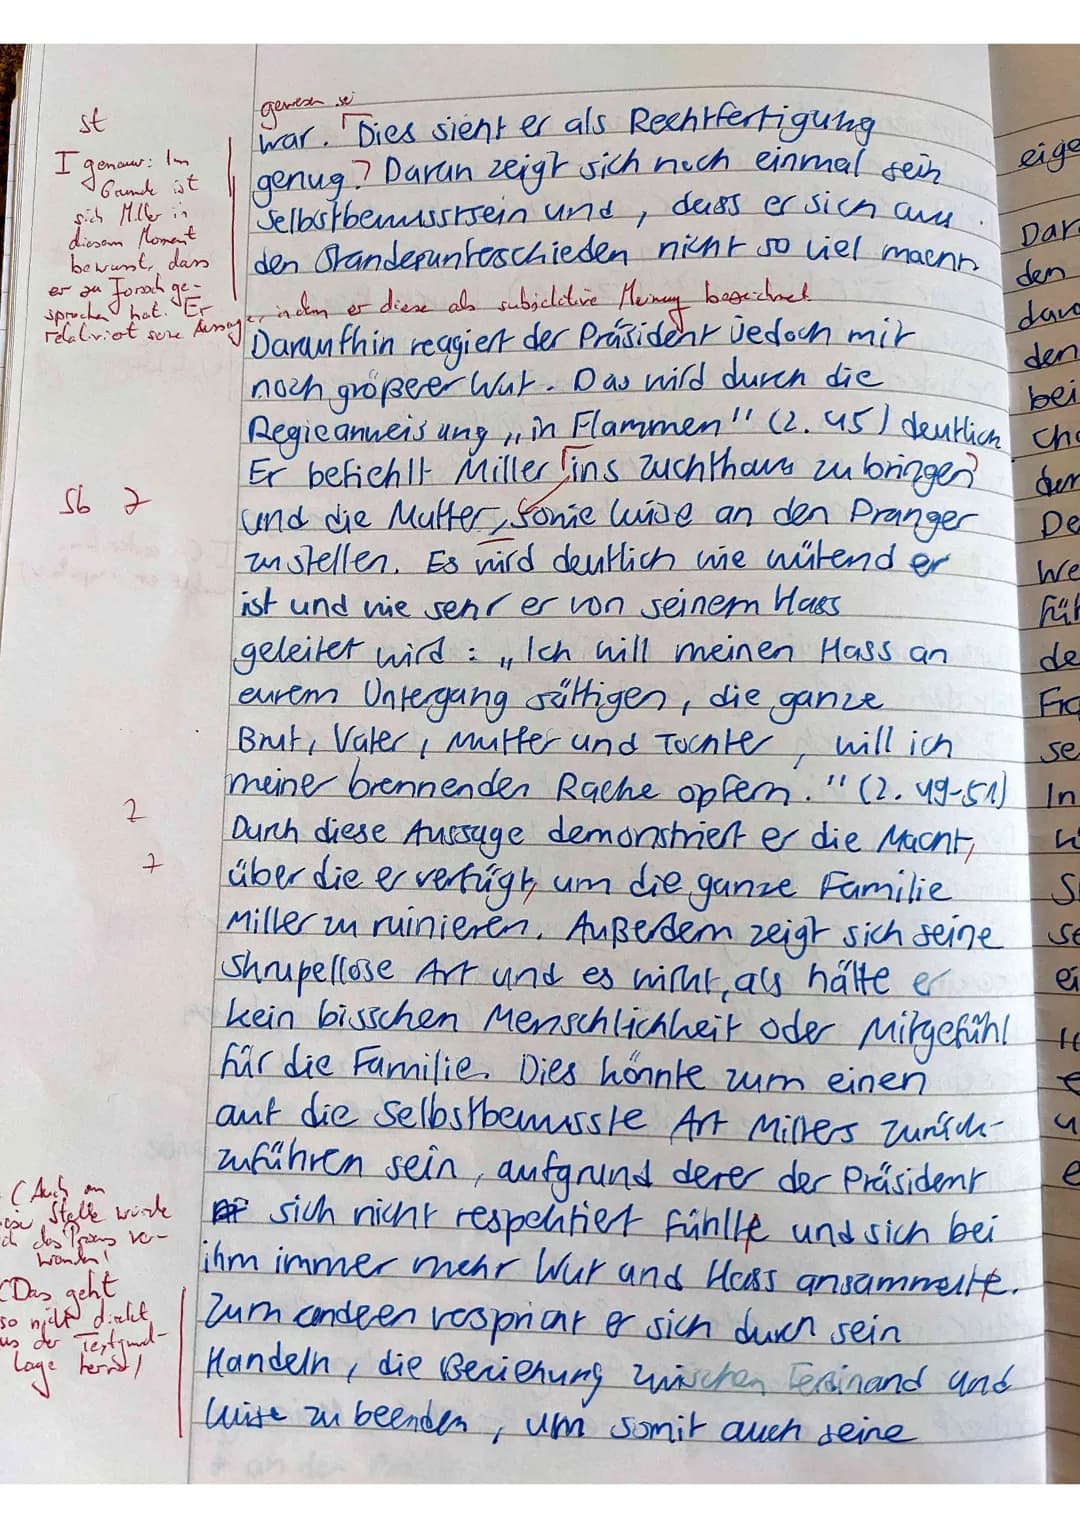 gewesen sei
war. Dies sieht er als Rechtfertigung
genug? Daran zeigt sich noch einmal sein
Selbstbewusstsein und, dass er sich aus
den Standesunterschieden nicht so viel macht
Daraufhin reagiert der Präsident jedoch mit
noch größerer Wut. Das wird durch die
Regieanweisung „in Flammen" (Z. 45) deutlich
Er befiehlt Miller ins Zuchthaus zu bringen
und die Mutter, sowie Luise an den Pranger
zu stellen. Es wird deutlich wie wütend er
ist und wie sehr er von seinem Hass
geleitet wird: „Ich will meinen Hass an
eurem Untergang sättigen, die ganze
Brut, Vater, Mutter und Tochter, will ich
meiner brennenden Rache opfern." (Z. 49-51)
Durch diese Aussage demonstriert er die Macht,
über die er verfügt, um die ganze Familie
Miller zu ruinieren. Außerdem zeigt sich seine
skrupellose Art und es wirkt, als hätte er
kein bisschen Menschlichkeit oder Mitgefühl
für die Familie. Dies könnte zum einen
auf die selbstbewusste Art Millers zurück-
zuführen sein, aufgrund derer der Präsident
sich nicht respektiert fühlte und sich bei
ihm immer mehr Wut und Hass ansammelte.
Zum anderen verspricht er sich durch sein
Handeln, die Beziehung zwischen Ferdinand und
Luise zu beenden, um somit auch seine
st
I genauer: Im
Grunde ist
sich Miller in
diesem Moment
bewusst, dass
er zu forsch ge-
sprochen hat. Er
relativiert seine Aussage, indem er diese als subjektive Meinung bezeichnet.
Sb Z
Z
Z
(Auch an
Stelle würde
ich das Präsens ver-
wenden!
(Das geht
so nicht direkt
aus der Textgrund-
lage hervor)
eige
Dar
den
davo
den
bei
Cha
der
De
We
füh
de
Fra
se
In
W
S
se
ei
e
u
e